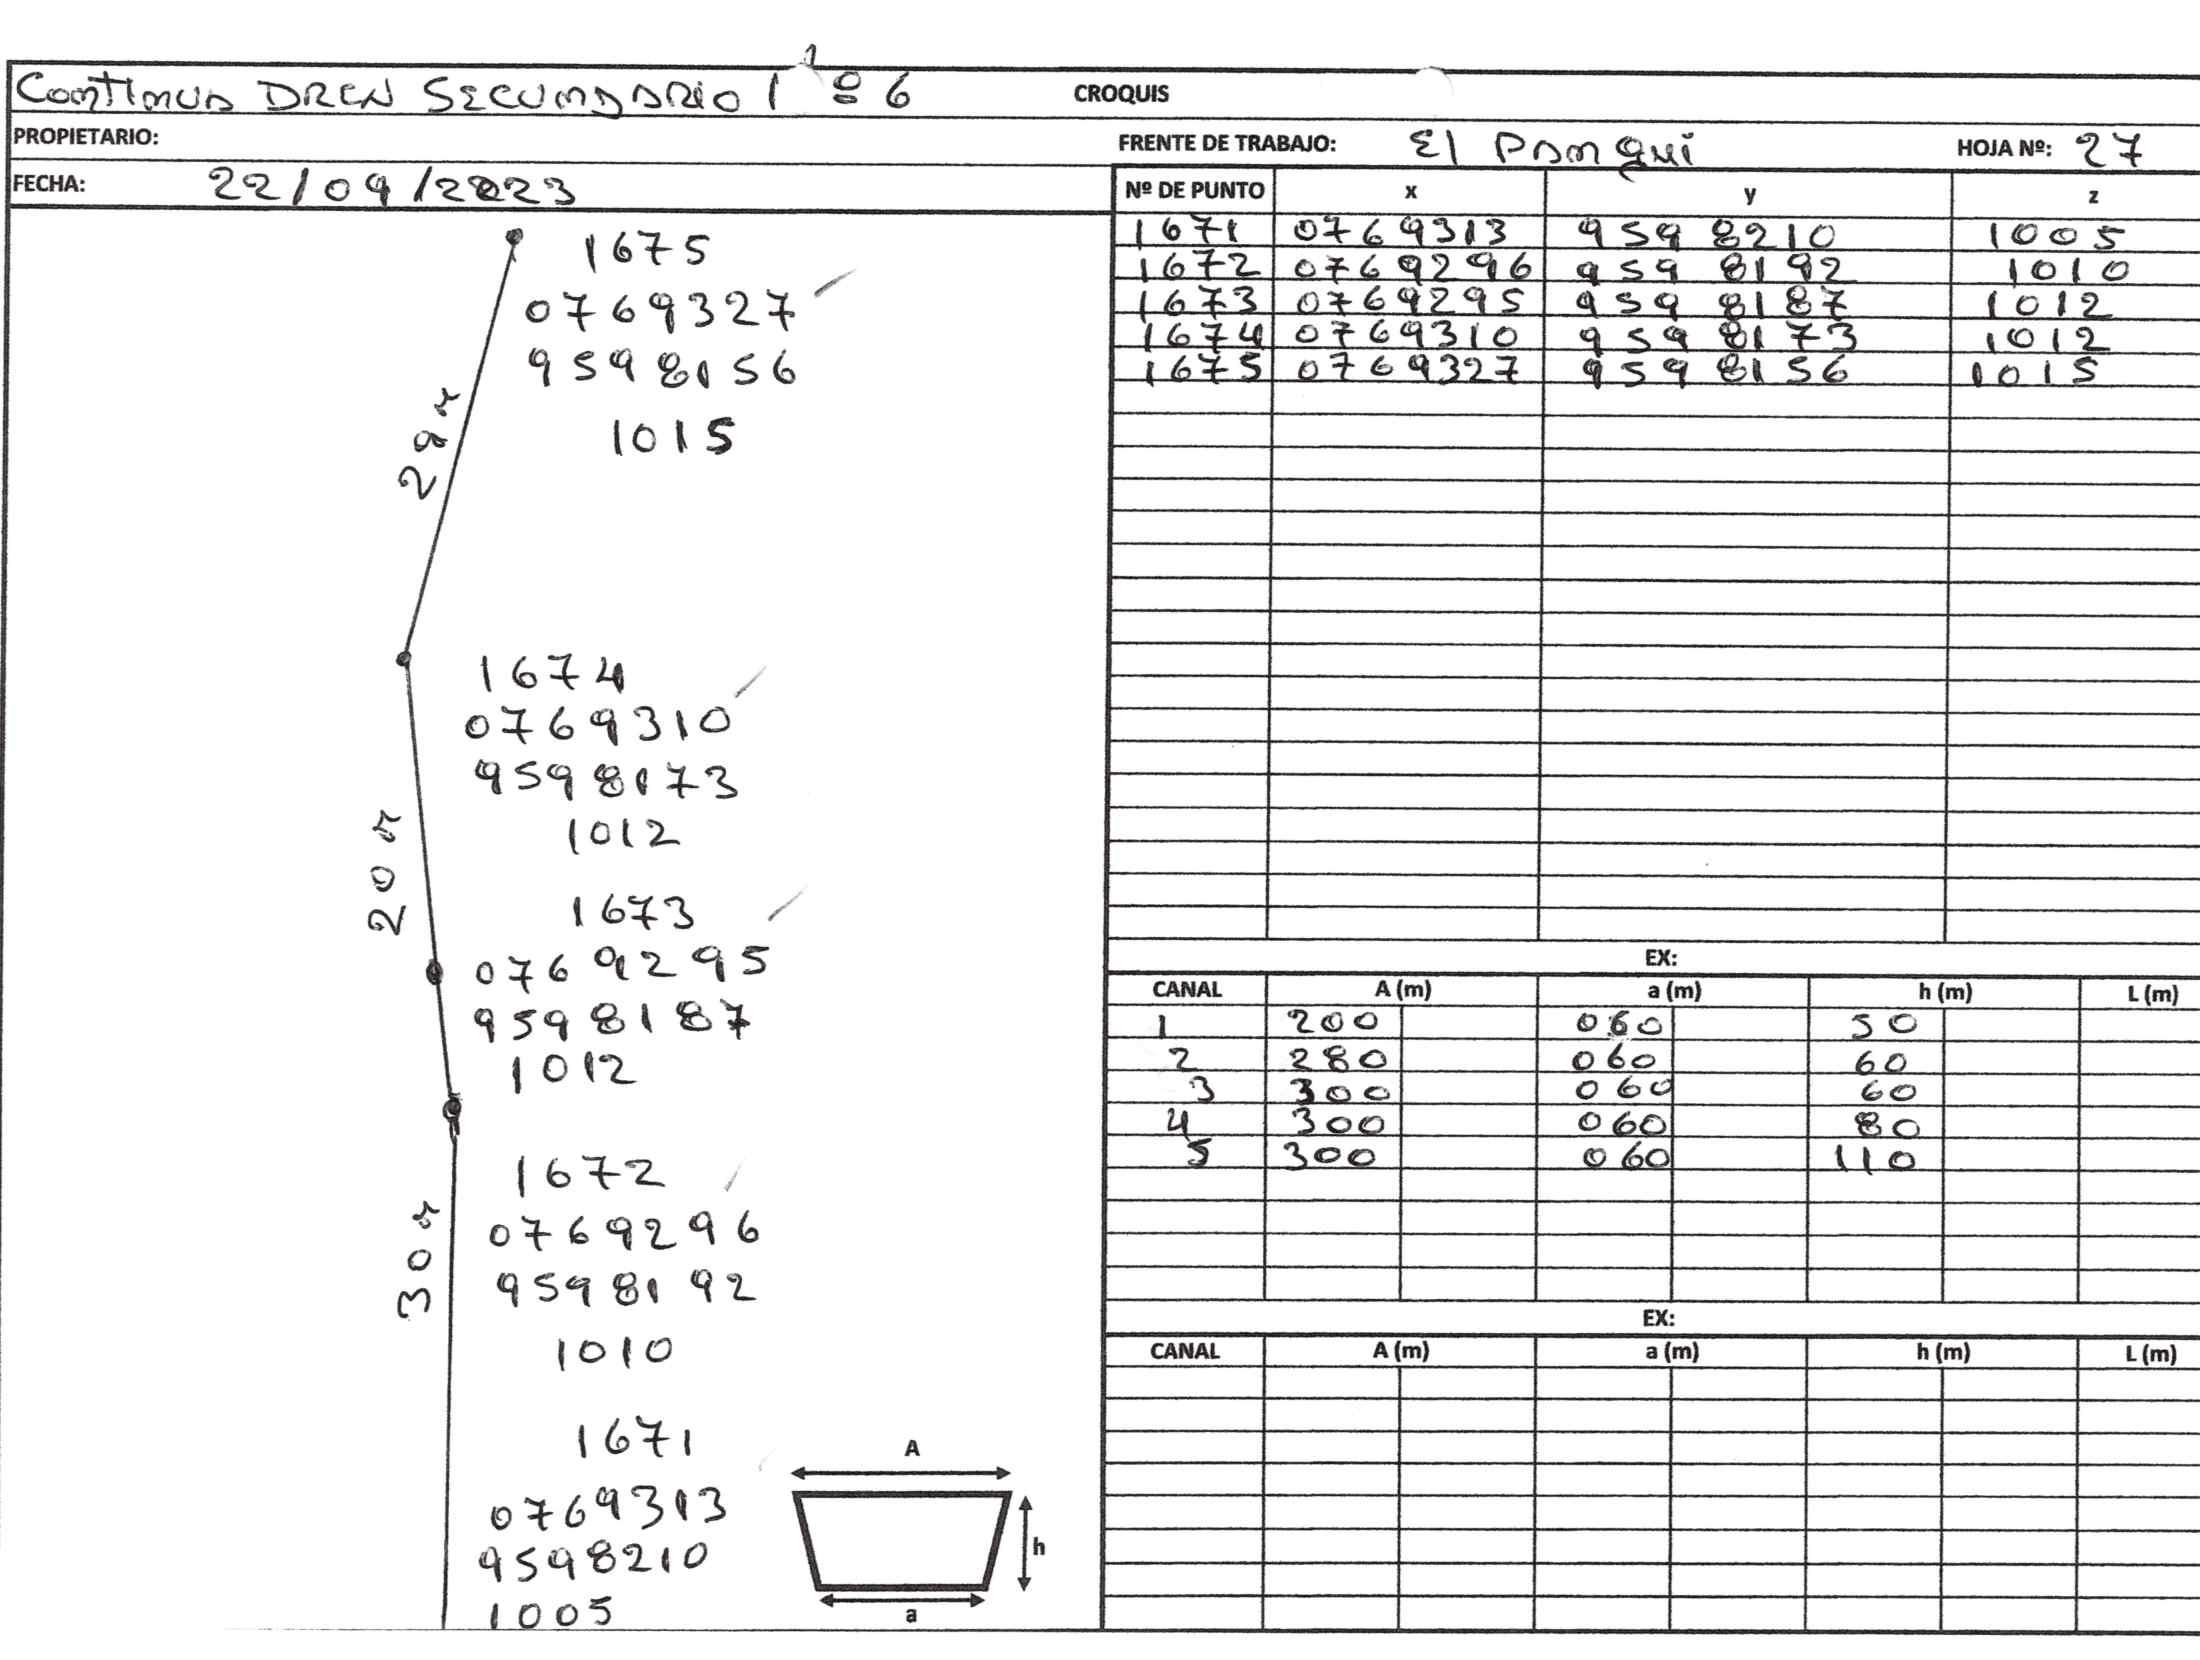 Continua DREN SECUNDARIO 1 º 6
CROQUIS
PROPIETARIO:
FRENTE DE TRABAJO: El Pangui
HOJA Nº: 27
FECHA: 22/09/2023
Nº DE PUNTO x y z
1671 0769313 959 8210 1005
1672 0769296 959 8192 1010
1673 0769295 959 8187 1012
1674 0769310 959 8173 1012
1675 0769327 959 8156 1015
1675
0769327
9598156
1015
1674
0769310
9598173
1012
20 m
1673
0769295
9598187
1012
1672
30 m
0769296
9598192
1010
1671
0769313
9598210
1005
A
h
a
EX:
CANAL A (m) a (m) h (m) L (m)
1 200 060 50
2 280 060 60
3 300 060 60
4 300 060 80
5 300 060 110
EX:
CANAL A (m) a (m) h (m) L (m)